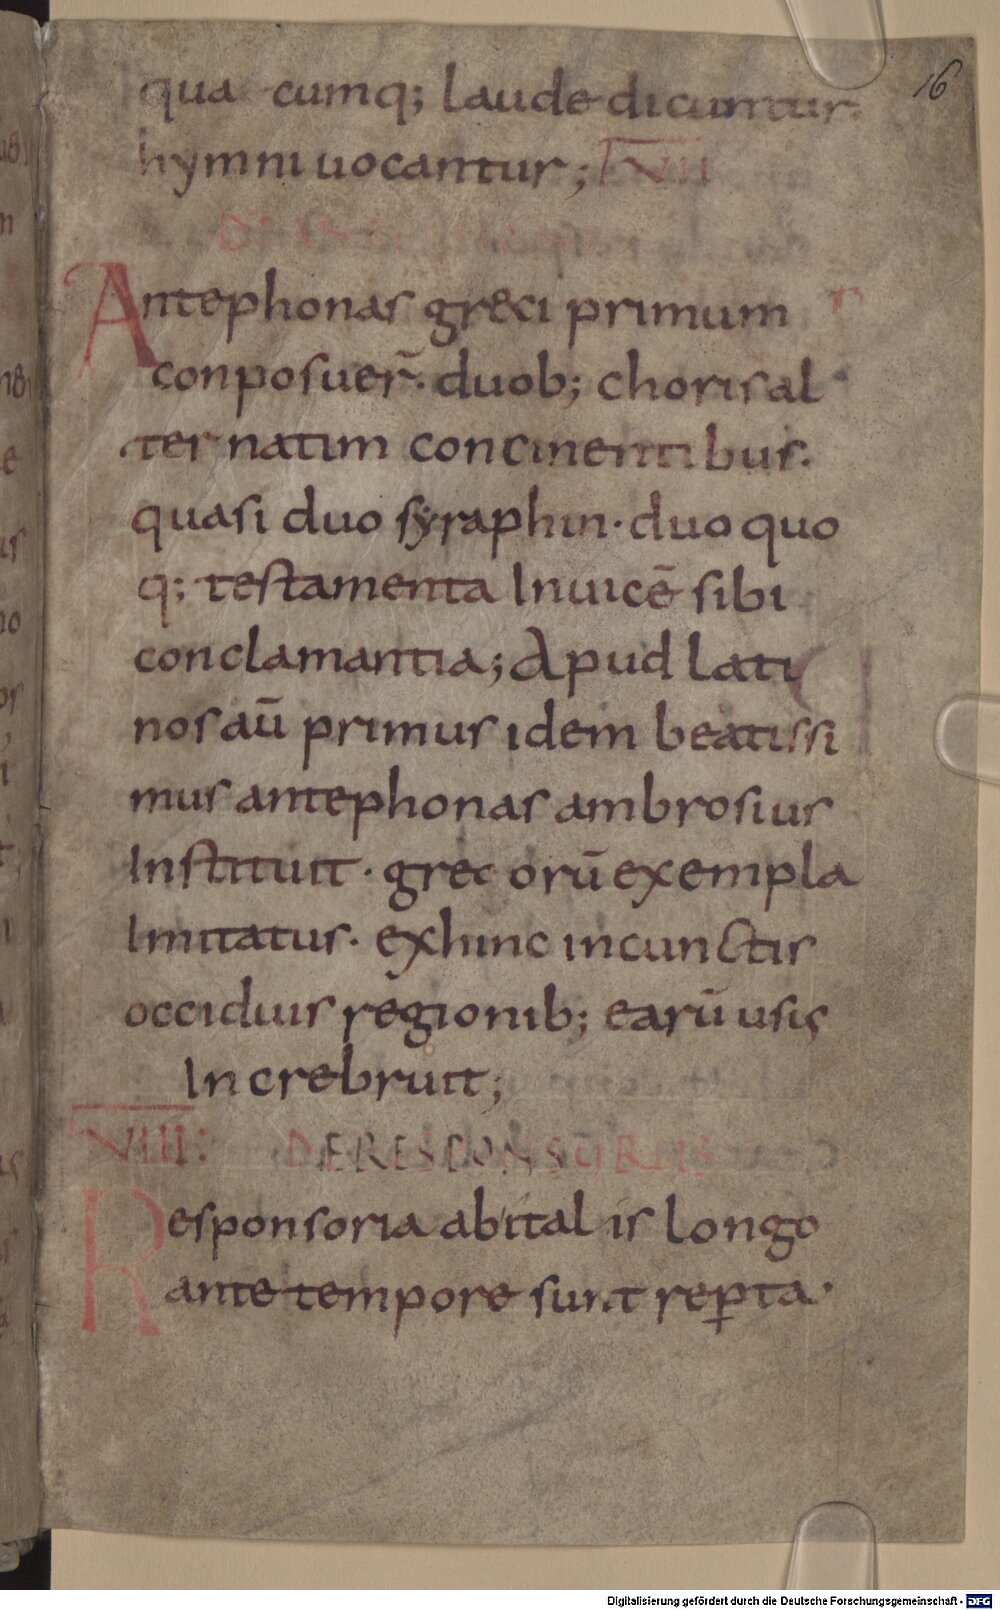 16
qua cumq; laude dicuntur.
hymni uocantur; VII
Antephonas greci primum
conposuer̄. duob; choris al
ternatim concinentibus.
quasi duo syraphin. duo quo
q; testamenta Inuicē sibi
conclamantia; Apud lati
nos aū primus idem beatissi
mus antephonas ambrosius
Instituit. grecorū exempla
Imitatus. exhinc in cunctis
occiduis regionib; earū usis
Increbruit;
VIII: DE RESPONSURIIS
Responsoria ab italis longo
ante tempore sunt rep̱ta.
Digitalisierung gefördert durch die Deutsche Forschungsgemeinschaft - DFG